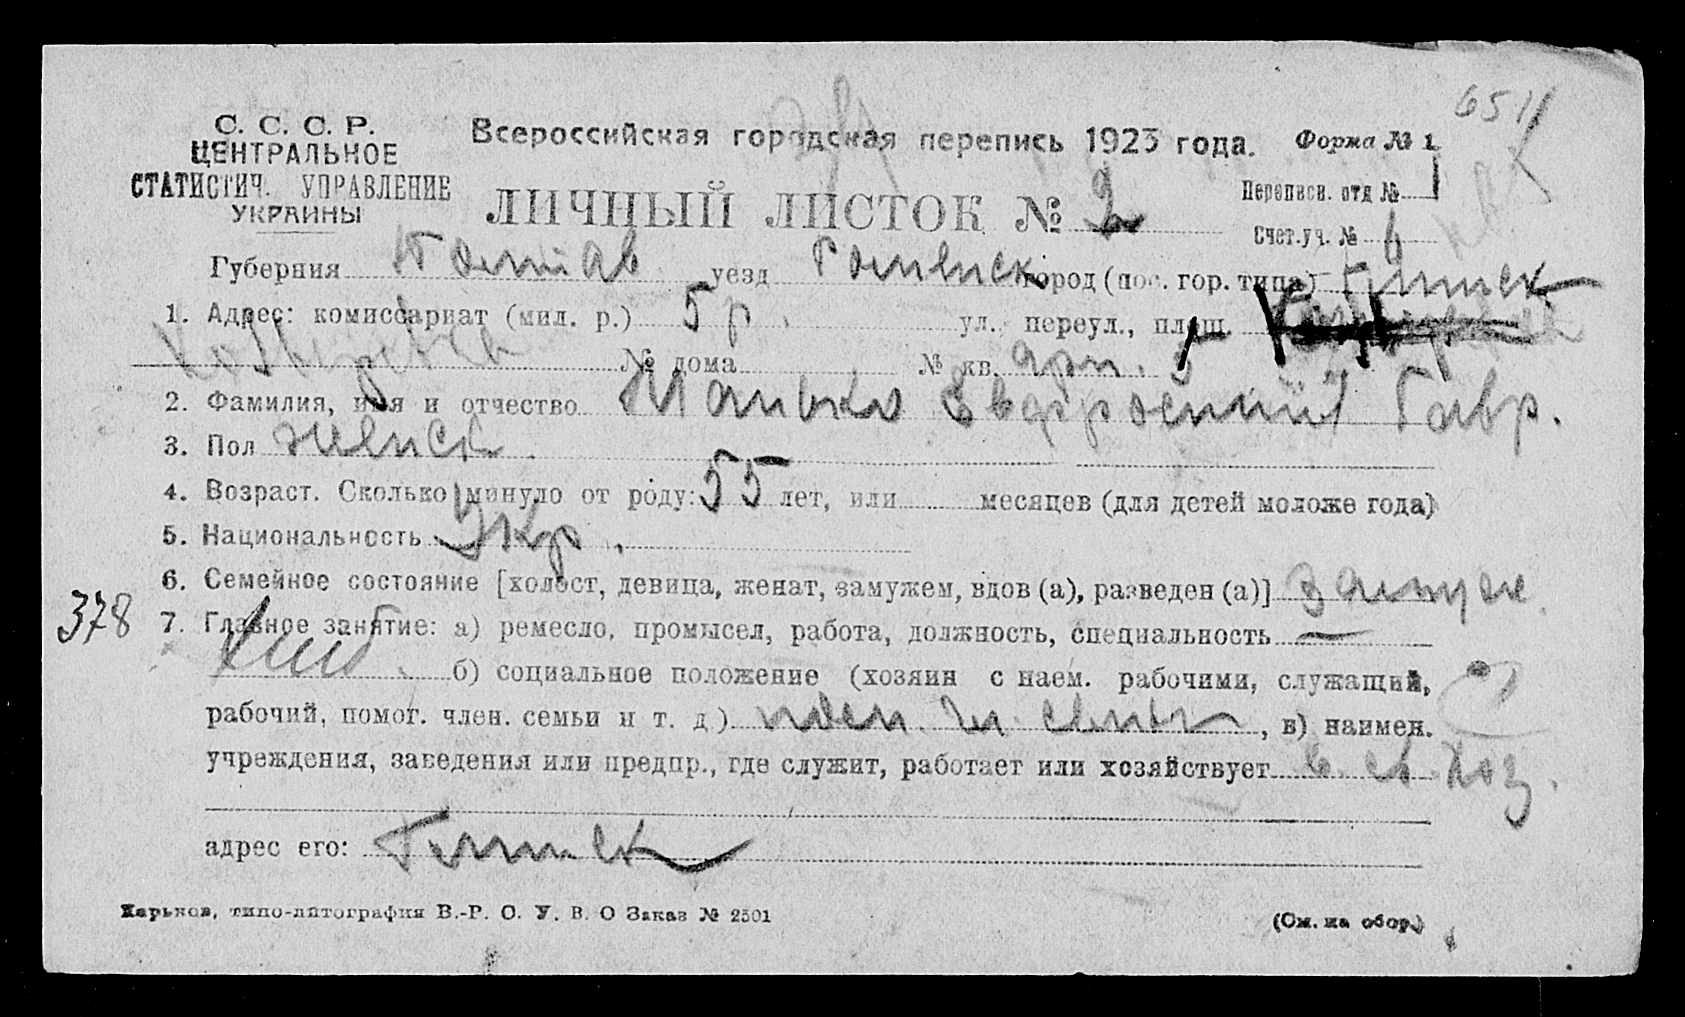 6511
С. С. С. Р.
ЦЕНТРАЛЬНОЕ
СТАТИСТИЧ. УПРАВЛЕНИЕ
УКРАИНЫ
Всероссийская городская перепись 1923 года.
Форма № 1
ЛИЧНЫЙ ЛИСТОК № 2
Переписн. отд № 1
Счет. уч. № 6
Губерния Полтав уезд Роменск город (пос. гор. типа)
1. Адрес: комиссариат (мил. р.) 5 р. ул., переул., площ.
№ дома № кв.
2. Фамилия, имя и отчество Гавр.
3. Пол женск.
4. Возраст. Сколько минуло от роду: 55 лет, или месяцев (для детей моложе года)
5. Национальность Укр.
6. Семейное состояние [холост, девица, женат, замужем, вдов (а), разведен (а)] замуж.
378
7. Главное занятие: а) ремесло, промысел, работа, должность, специальность —
б) социальное положение (хозяин с наем. рабочими, служащий,
рабочий, помог. член. семьи и т. д.) семьи, в) наимен.
учреждения, заведения или предпр., где служит, работает или хозяйствует в с. хоз.
адрес его:
Харьков, типо-литография В.-Р. С. У. В. О Заказ № 2501
(См. на обор.)